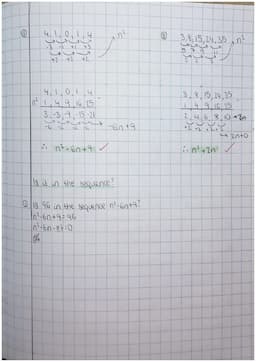 4, 1, 0, 1, 4
-3 -1 +1 +3
+2 +2 +2
n²
4, 1, 0, 1, 4
n² 1, 4, 9, 16, 25
3, -3, -9, -15, -21
-6 -6 -6 -6
-6n+9
∴ n²-6n+9
3, 8, 15, 24, 35
5 7 9 11
2 2 2
n²
3, 8, 15, 24, 35
1, 4, 9, 16, 25
2, 4, 6, 8, 10 → 2n
+2 +2 +2 +2
→ 2n+0
∴ n²+2n
Is it in the sequence?
Is 96 in the sequence n²-6n+9?
n²-6n+9=96
n²-6n-87=0